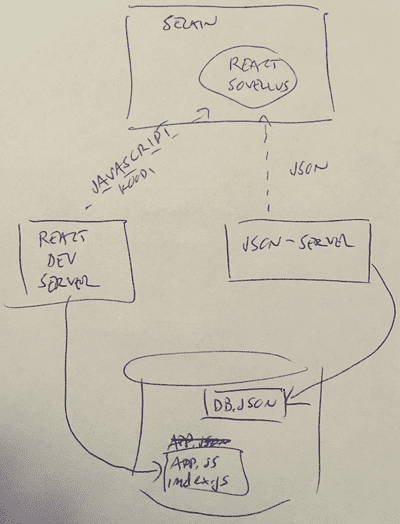 SELAIN
REACT
SOVELLUS
JAVASCRIPT
KOODI
JSON
REACT
DEV
SERVER
JSON-SERVER
DB.JSON
APP.JS
index.js